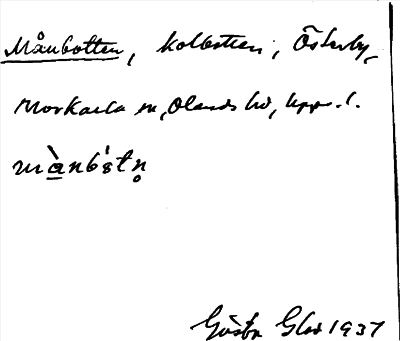 Månbotten, kolbotten; Österby,
Morkarla sn, Olands hd, Upps. l.
mànbɔ́tn̥
Gösta Glas 1937